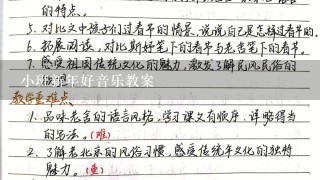 的特点。
5. 对比文中孩子们过春节的情景,说说自己是怎样过春节的。
6. 拓展阅读,对比斯好笔下的春节与老舍笔下的春节。
7. 感受祖国传统文化的魅力,激发了解民风民俗的
小班新年好音乐教案
教学重难点
1. 品味老舍的语言风格,学习课文有顺序、详略得当
的写法。(难)
2. 了解老北京的风俗习惯,感受传统年文化的独特
魅力。(重)